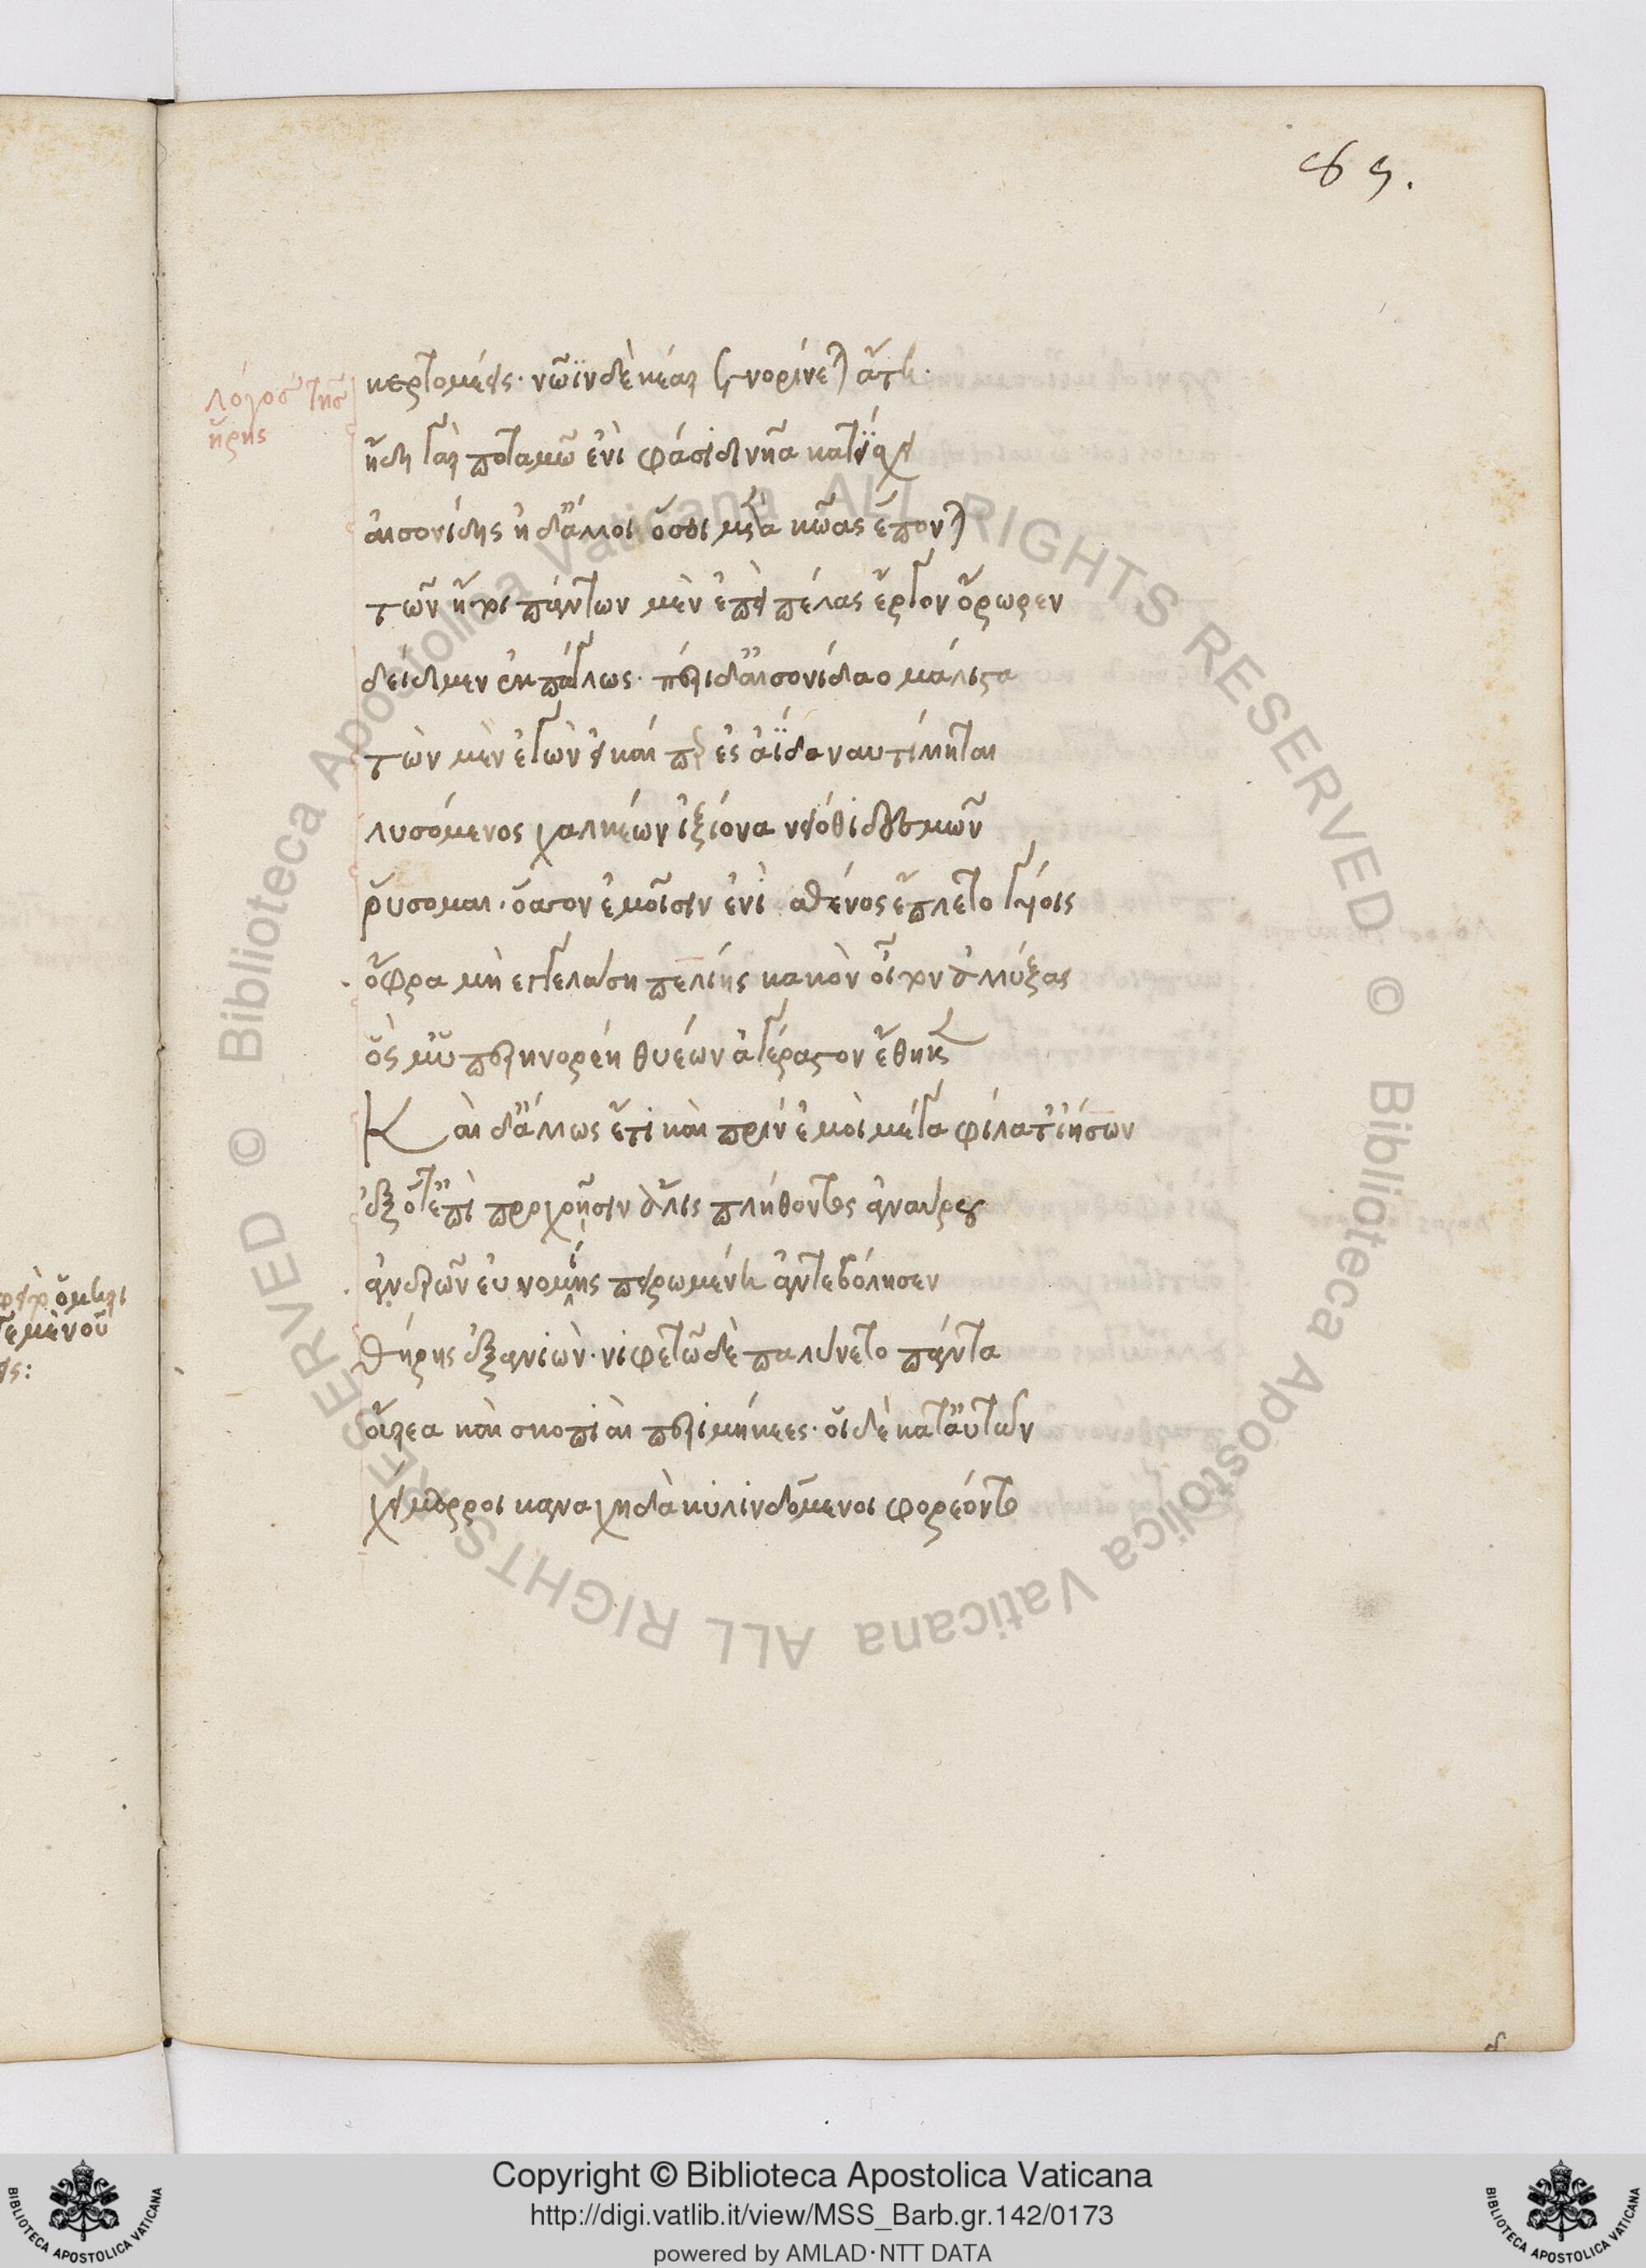 85.
Λόγος τῆς
ἥρης
κερτομέεις· νῶϊν δὲ κέαρ συνορίνεται ἄτη.
ἤδη γὰρ ποταμῶ ἐνὶ φάσιδι νῆα κατίσχει
αἰσονίδης ἠδ' ἄλλοι ὅσοι μετὰ κῶας ἕπονται
τῶν ἤτοι πάντων μὲν ἐπεὶ πέλας ἔργον ὄρωρεν
δείδιμεν ἐκπάγλως· περὶ δ' αἰσονίδαο μάλιστα
τὸν μὲν ἐγὼν εἰ καί περ ἐς ἀΐδα ναυτίλληται
λυσόμενος χαλκέων ἰξίονα νειόθι δεσμῶν
ῥύσομαι· ὅσσον ἐμοῖσιν ἐνὶ σθένος ἔπλετο γυίοις
ὄφρα μὴ ἐγγελάση πελίης κακὸν οἶτον ἀλύξας
ὅς μ' ὑπερηνορέη θυέων ἀγέραστον ἔθηκεν
Καὶ δ' ἄλλως ἔτι καὶ πρὶν ἐμοὶ μέγα φίλατ' ἰήσων
ἐξ ὅτ' ἐπὶ προχοῆσιν ἅλις πλήθοντος ἀναύρου
ἀνδρῶν εὐνομίης πειρωμένη ἀντεβόλησεν
θήρης ἐξανιὼν· νιφετῶ δ' ἐπαλύνετο πάντα
οὔρεα καὶ σκοπιαὶ περιμήκεες· οἱ δὲ κατ' αὐτῶν
χείμαρροι καναχηδὰ κυλινδόμενοι φορέοντο
© Biblioteca Apostolica Vaticana ALL RIGHTS RESERVED
© Biblioteca Apostolica Vaticana ALL RIGHTS RESERVED
Copyright © Biblioteca Apostolica Vaticana
http://digi.vatlib.it/view/MSS_Barb.gr.142/0173
powered by AMLAD·NTT DATA
BIBLIOTECA APOSTOLICA VATICANA
BIBLIOTECA APOSTOLICA VATICANA